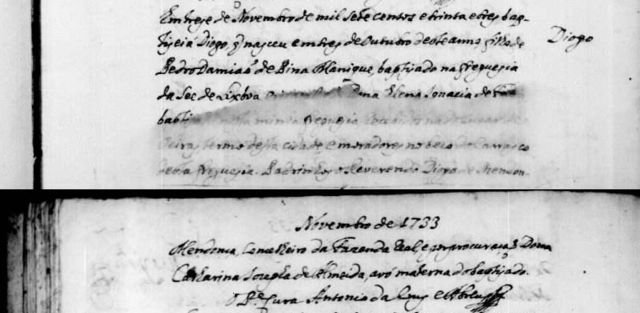 Em treze de Novembro de mil Sete centos e trinta e tres bap-
tizei a Diogo, q̃ nasceu em tres de Outubro deste anno filho de
Diogo
Pedro Damiaõ de Pina Manique, baptizado na freguezia
da See de Lixboa Dona Elena Ignacia de
baptiz minha freguezia
termo desta cidade e moradores no beco do Carrasco
desta freguezia. Padrinhos o Reverendo Diogo de Mendon-
Novembro de 1733
Mendonca Conselheiro da Fazenda Real e por procuraçaõ Dona
Catharina Josepha de Almeida, avó materna do baptizado.
O P.e Cura Antonio da Cruz e Abreu